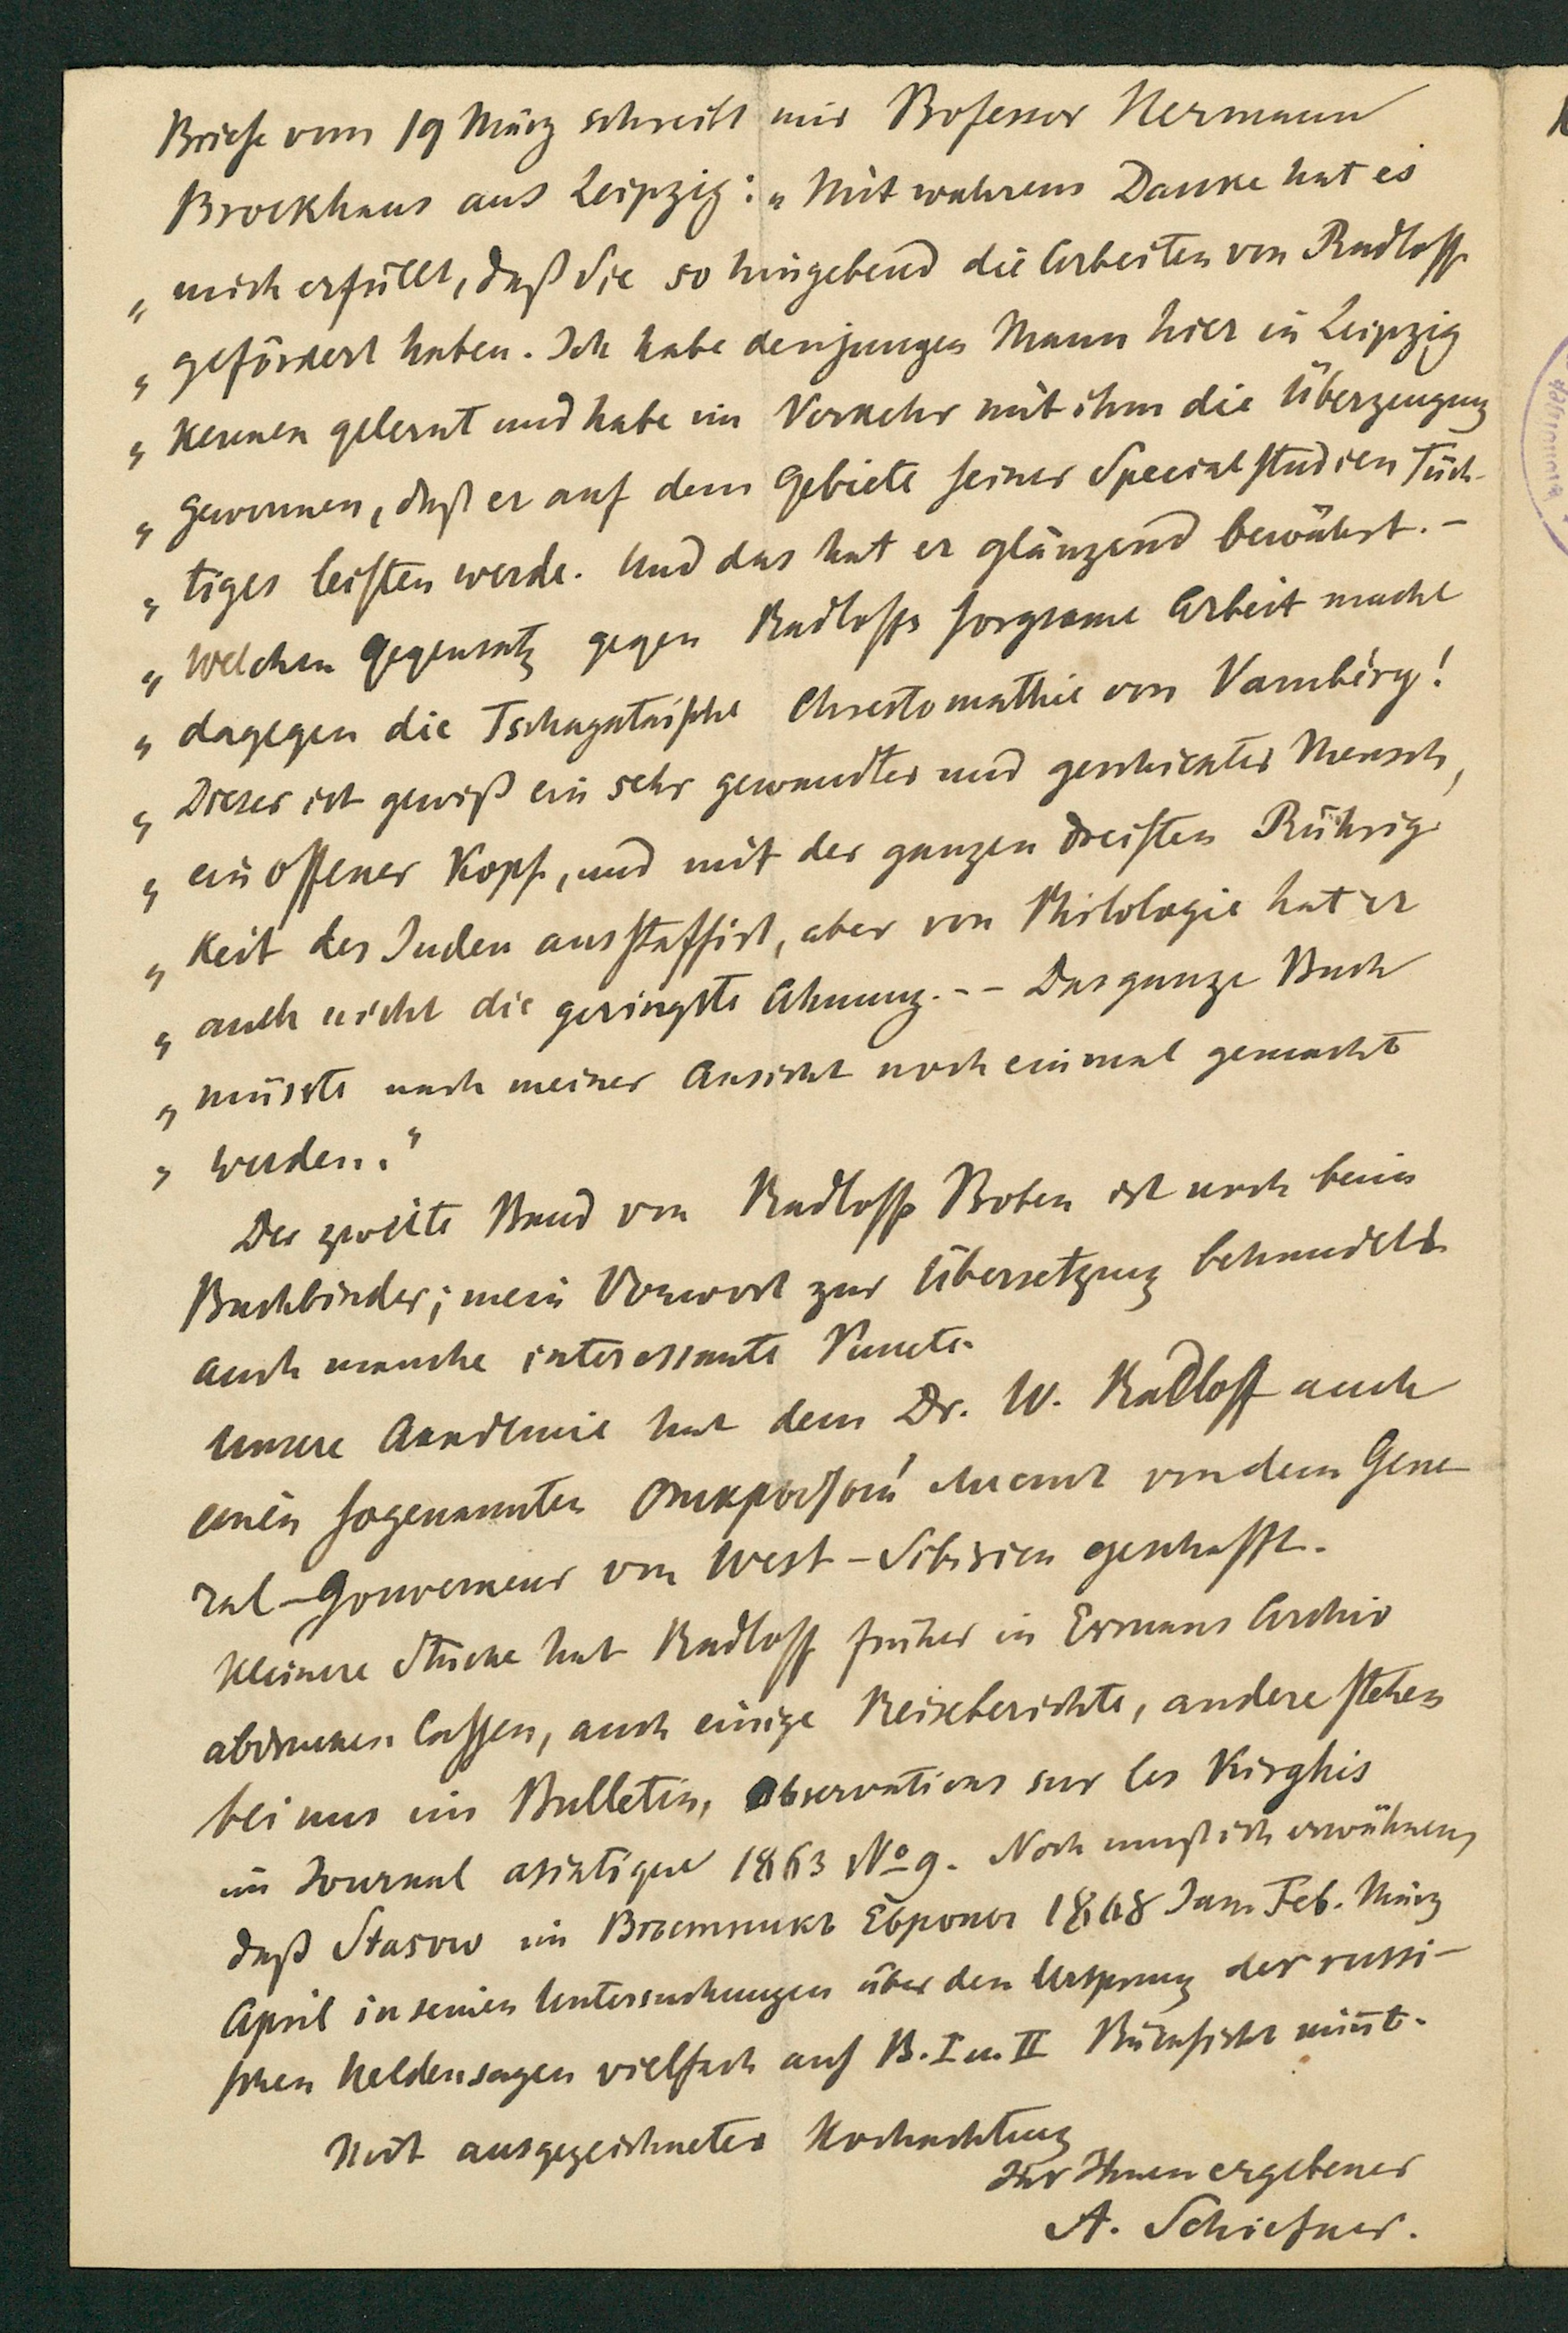 Briefe vom 19 März schreibt mir Professor Hermann
Brockhaus aus Leipzig: „Mit wahrem Danke hat es
„ mich erfüllt, daß Sie so hingebend die Arbeiten von Radloff
„ gefördert haben. Ich habe den jungen Mann hier in Leipzig
„ kennen gelernt und habe im Verkehr mit ihm die Überzeugung
„ gewonnen, daß er auf dem Gebiete seiner Specialstudien Tüch-
„ tiges leisten werde. Und das hat er glänzend bewährt. –
„ Welchen Gegensatz gegen Radloffs sorgsame Arbeit macht
„ dagegen die Tschagataische Chrestomathie von Vambéry!
„ Dieser ist gewiß ein sehr gewandter und geschickter Mensch,
„ ein offener Kopf, und mit der ganzen dreisten Rührig-
„ keit des Juden ausstaffirt, aber von Philologie hat er
„ auch nicht die geringste Ahnung. – – Das ganze Buch
„ müsste nach meiner Ansicht noch einmal gemacht
„ werden.“
Der zweite Band von Radloffs Proben ist noch beim
Buchbinder; mein Vorwort zur Übersetzung behandelt
auch manche interessante Puncte.
Unsere Akademie hat dem Dr. W. Radloff auch
einen sogenannten открытый листъ von dem Gene-
ral-Gouverneur von West-Sibirien geschafft.
Kleinere Stücke hat Radloff früher in Ermans Archiv
abdrucken lassen, auch einige Reiseberichte, andere stehen
bei uns im Bulletin, Observations sur les Kirghis
im Journal asiatique 1863 No 9. Noch muß ich erwähnen,
daß Stasow im Вѣстникъ Европы 1868 Jan. Feb. März
April in seinen Untersuchungen über den Ursprung der russi-
schen Heldensagen vielfach auf B. I u. II Rücksicht nim̄t.
Mit ausgezeichneter Hochachtung
Ihr Ihnen ergebener
A. Schiefner.